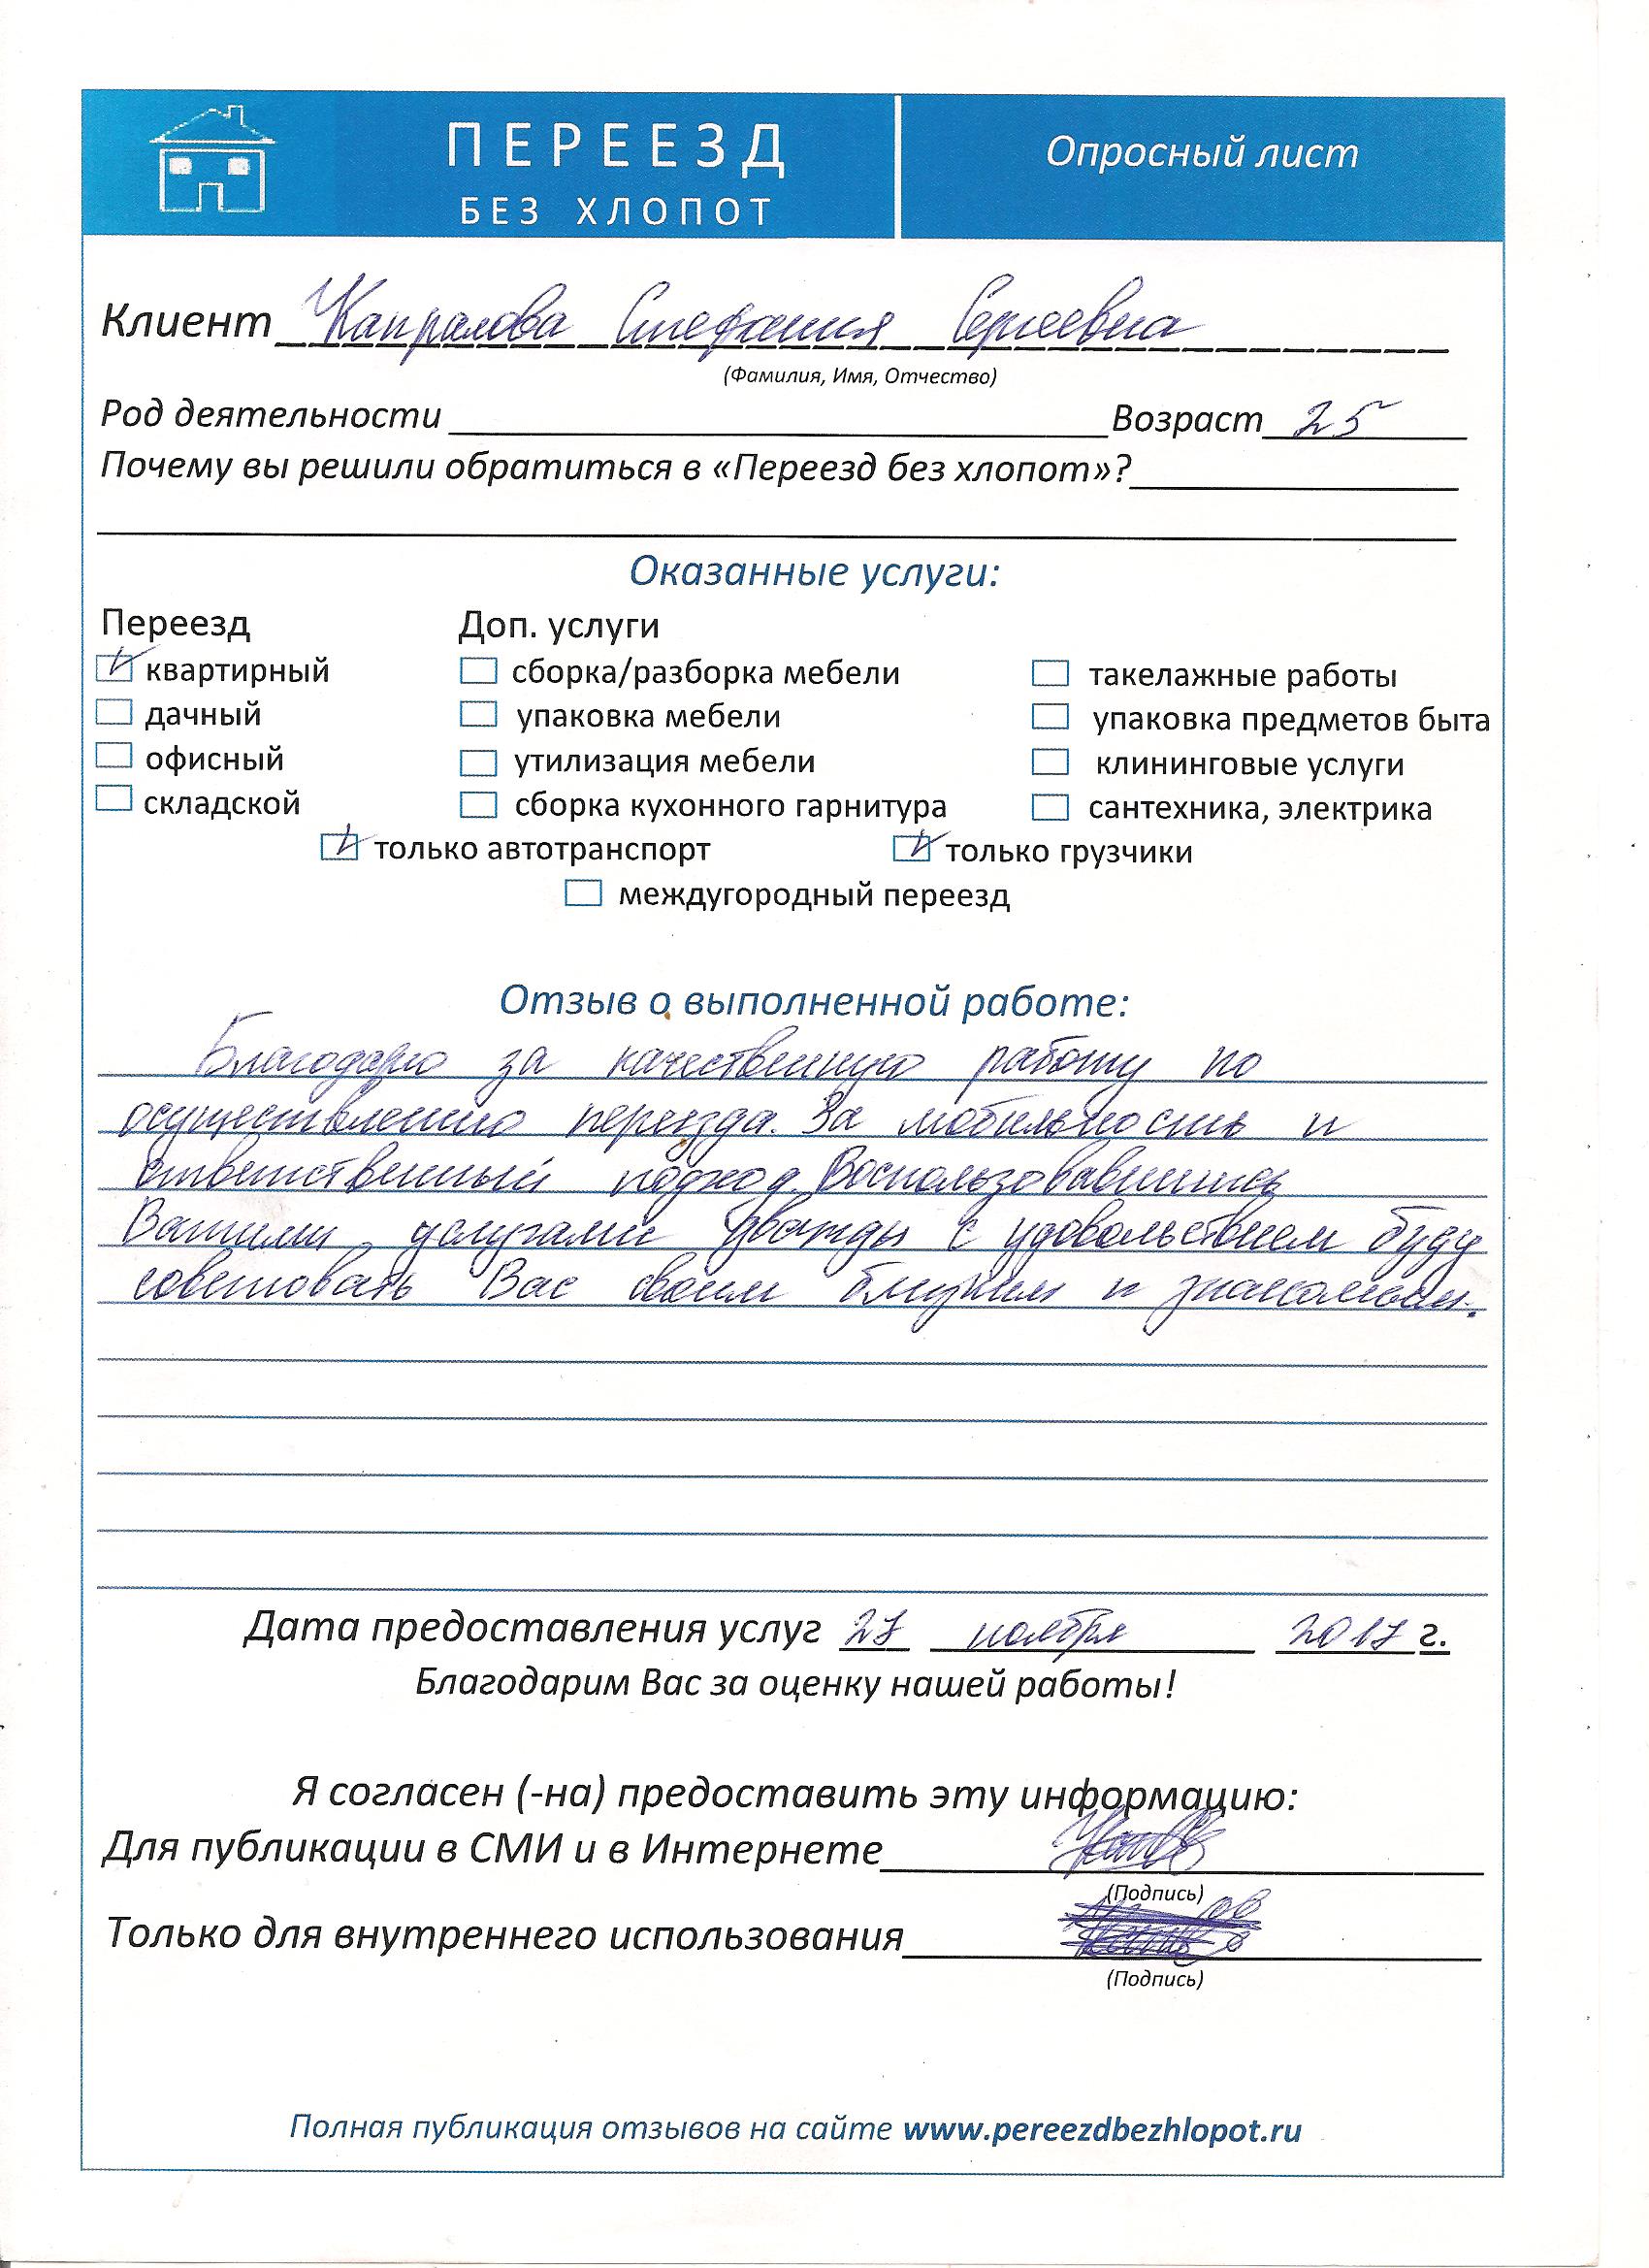 ПЕРЕЕЗД
БЕЗ ХЛОПОТ
Опросный лист
Клиент Капралова Стефания Сергеевна
(Фамилия, Имя, Отчество)
Род деятельности Возраст 25
Почему вы решили обратиться в «Переезд без хлопот»?
Оказанные услуги:
Переезд Доп. услуги
квартирный сборка/разборка мебели такелажные работы
дачный упаковка мебели упаковка предметов быта
офисный утилизация мебели клининговые услуги
складской сборка кухонного гарнитура сантехника, электрика
только автотранспорт только грузчики
междугородный переезд
Отзыв о выполненной работе:
Благодарю за качественную работу по
осуществлению переезда. За мобильность и
ответственный подход. Воспользовавшись
Вашими услугами дважды с удовольствием буду
советовать Вас своим близким и знакомым.
Дата предоставления услуг 27 ноября 2017 г.
Благодарим Вас за оценку нашей работы!
Я согласен (-на) предоставить эту информацию:
Для публикации в СМИ и в Интернете
(Подпись)
Только для внутреннего использования
(Подпись)
Полная публикация отзывов на сайте www.pereezdbezhlopot.ru